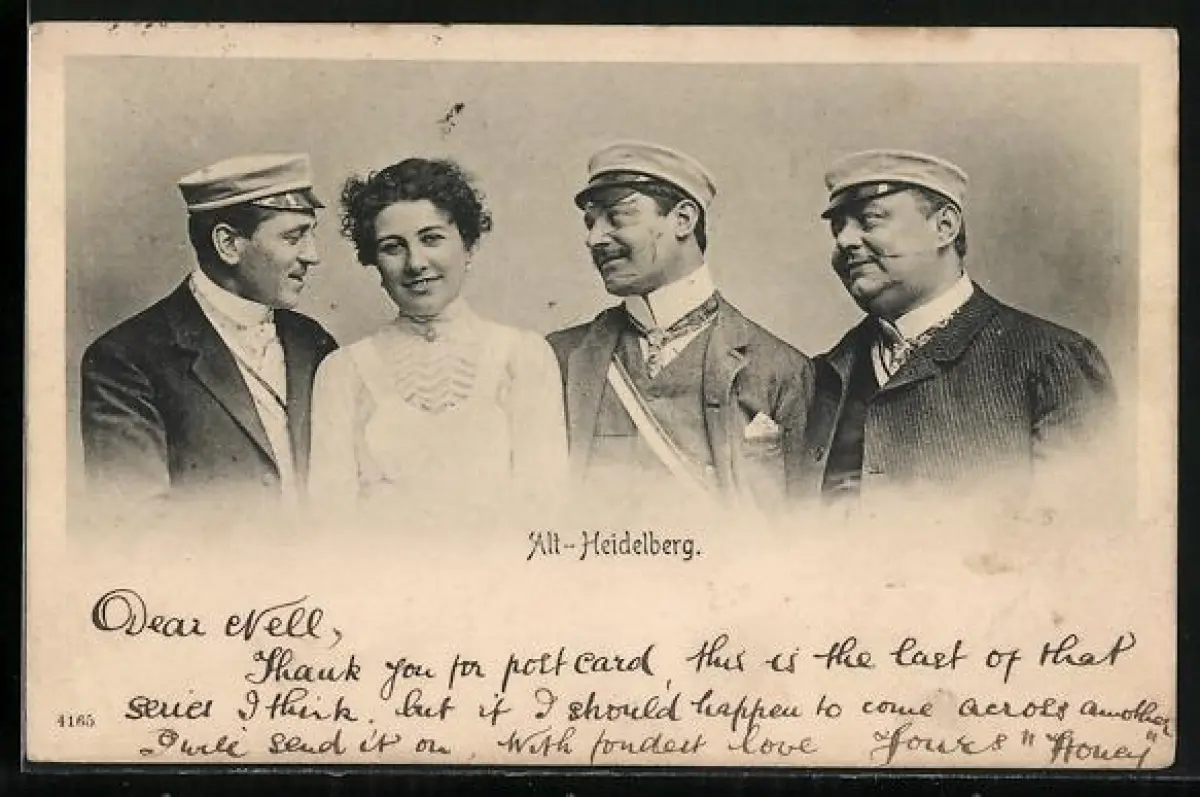 Alt-Heidelberg.
Dear Nell,
Thank you for post card, this is the last of that
4165
series I think, but if I should happen to come across another
I will send it on, With fondest love Yours "Honey"